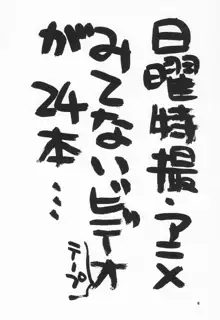 日曜特撮・アニメ
みてないビデオ
テープ
が
24本…